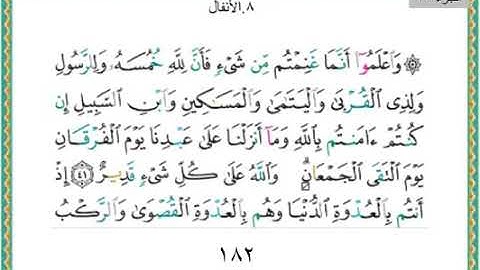 ٨.الأنفال
۞ وَاعْلَمُوا أَنَّمَا غَنِمْتُم مِّن شَيْءٍ فَأَنَّ لِلَّهِ خُمُسَهُ وَلِلرَّسُولِ
وَلِذِي الْقُرْبَى وَالْيَتَامَى وَالْمَسَاكِينِ وَابْنِ السَّبِيلِ إِن
كُنتُمْ ءَامَنتُم بِاللَّهِ وَمَا أَنزَلْنَا عَلَى عَبْدِنَا يَوْمَ الْفُرْقَانِ
يَوْمَ الْتَقَى الْجَمْعَانِ ۗ وَاللَّهُ عَلَى كُلِّ شَيْءٍ قَدِيرٌ ﴿٤١﴾ إِذْ
أَنتُم بِالْعُدْوَةِ الدُّنْيَا وَهُم بِالْعُدْوَةِ الْقُصْوَى وَالرَّكْبُ
١٨٢